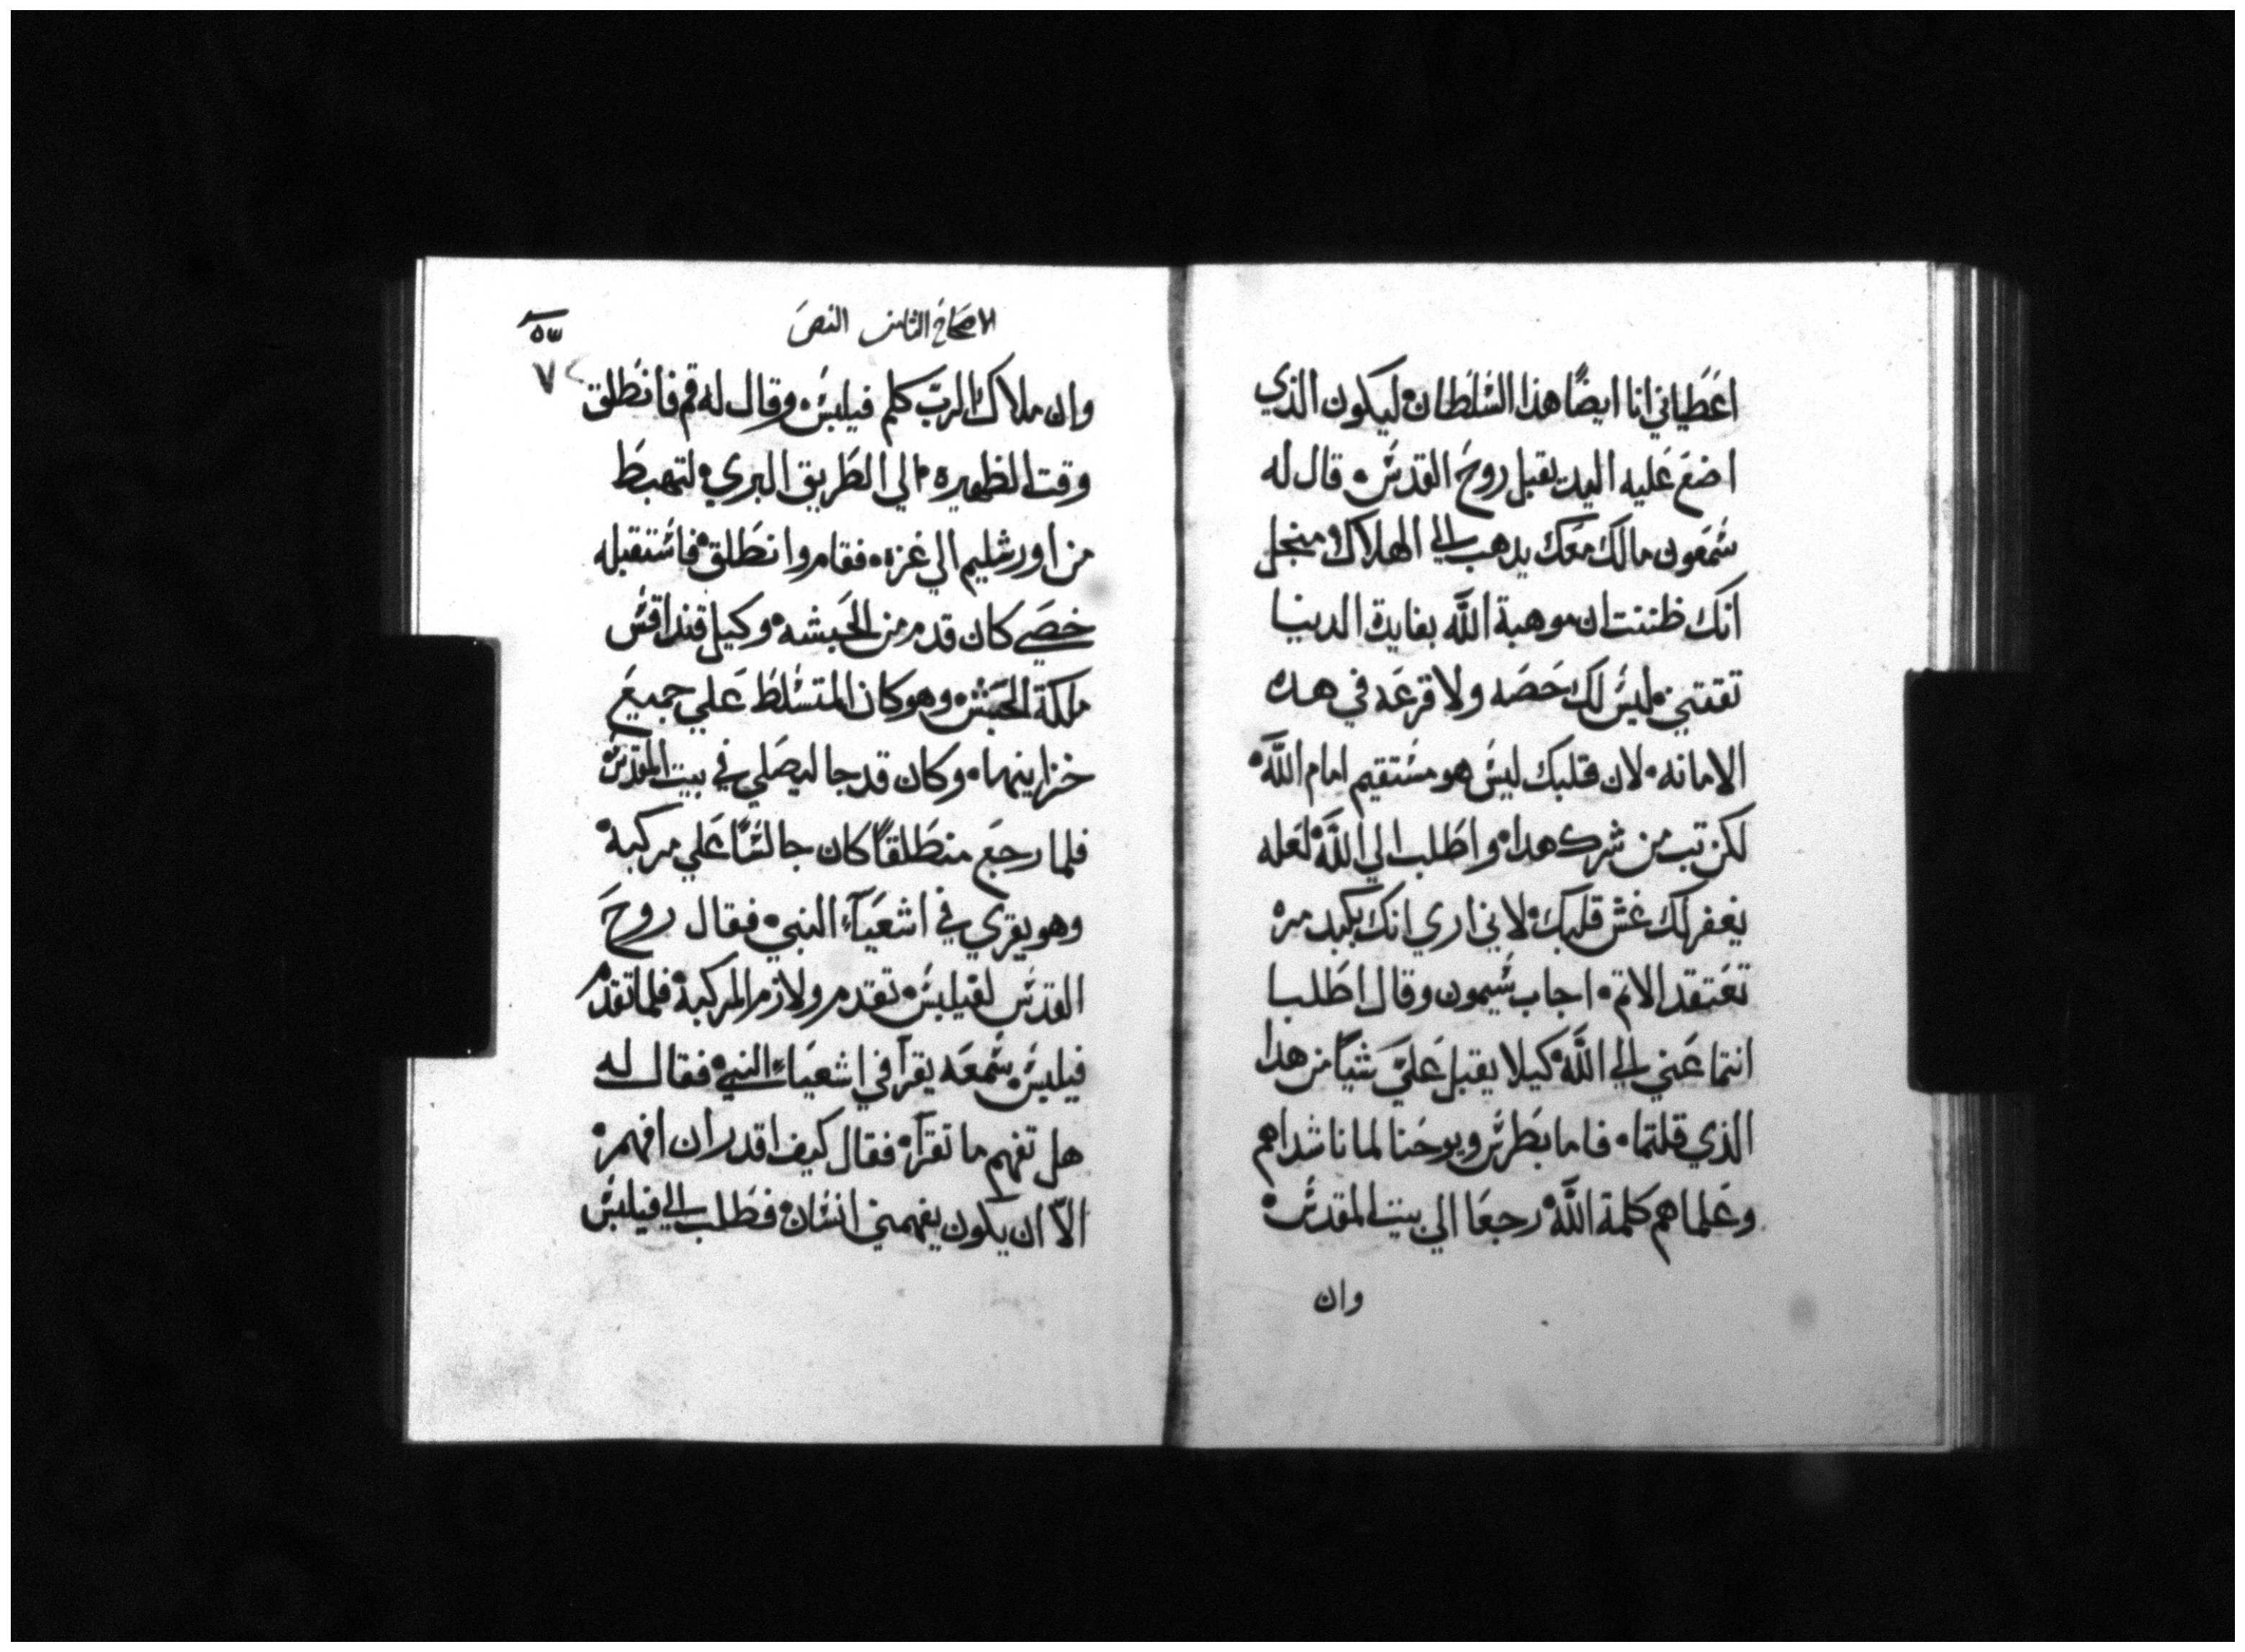 اعطياني انا ايضًا هذا السلطان ليكون الذي
اضع عليه اليد يقبل روح القدس قال له
سمعون مالك معك يدهب الي الهلاك منجل
انك ظننت ان موهبة الله بفايدة الدنيا
تقتني ليس لك حصه ولا قرعه في هده
الامانه لان قلبك ليس هو مستقيم امام الله
لكن تب من شرك هدا واطلب الي الله لعله
يغفر لك غش قلبك لاني اري انك بكبد مره
تعتقد الاثم اجاب سيمون وقال اطلبا
انتما عني الي الله كيلا يقبل علي شيًا من هدا
الذي قلتما فاما بطرس ويوحنا لما ناشداهم
وعلماهم كلمة الله رجعا الي بيت المقدس
وان
الاصحاح الثامن النص
٥٣
٧
وان ملاك الرب كلم فيلبس وقال له قم فانطلق
وقت الظهيره الي الطريق البري لتهبط
من اورشليم الي غزه فقام وانطلق فاستقبله
خصي كان قدم من الحبشه وكيل قنداقس
ملكة الحبش وهو كان المتسلط علي جميع
خزاينها وكان قد جا ليصلي في بيت المقدس
فلما رجع منطلقًا كان جالسًا علي مركبة
وهو يقري في اشعيآء النبي فقال روح
القدس لفيلبس تقدم ولازم المركبة فلما تقدم
فيلبس سمعه يقرآ في اشعياء النبي فقال له
هل تفهم ما تقرآ فقال كيف اقدر ان افهم
الّا ان يكون يفهمني انسان فطلب الي فيلبس